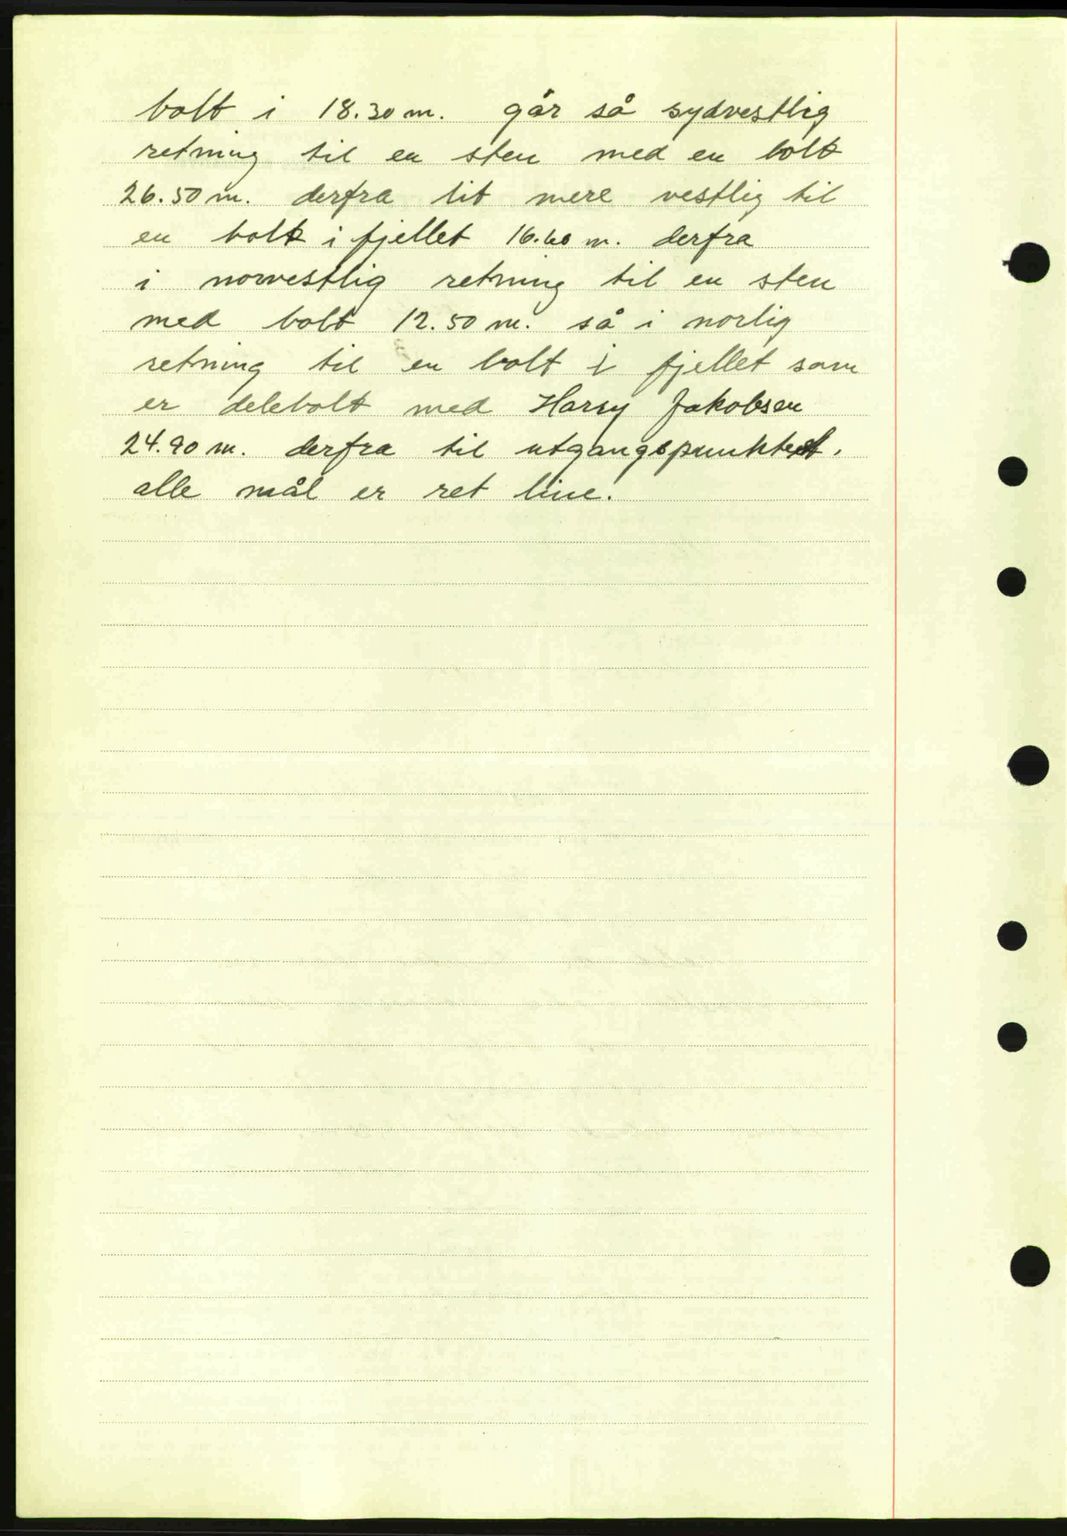 bolt i 18.30 m. går så sydvestlig
retning til en sten med en bolt
26.50 m. derfra lit mere vestlig til
en bolt i fjellet 16.60 m. derfra
i norvestlig retning til en sten
med bolt 12.50 m. så i norlig
retning til en bolt i fjellet som
er delebolt med Harry Jakobsen
24.90 m. derfra til utgangspunktet.
alle mål er ret line.